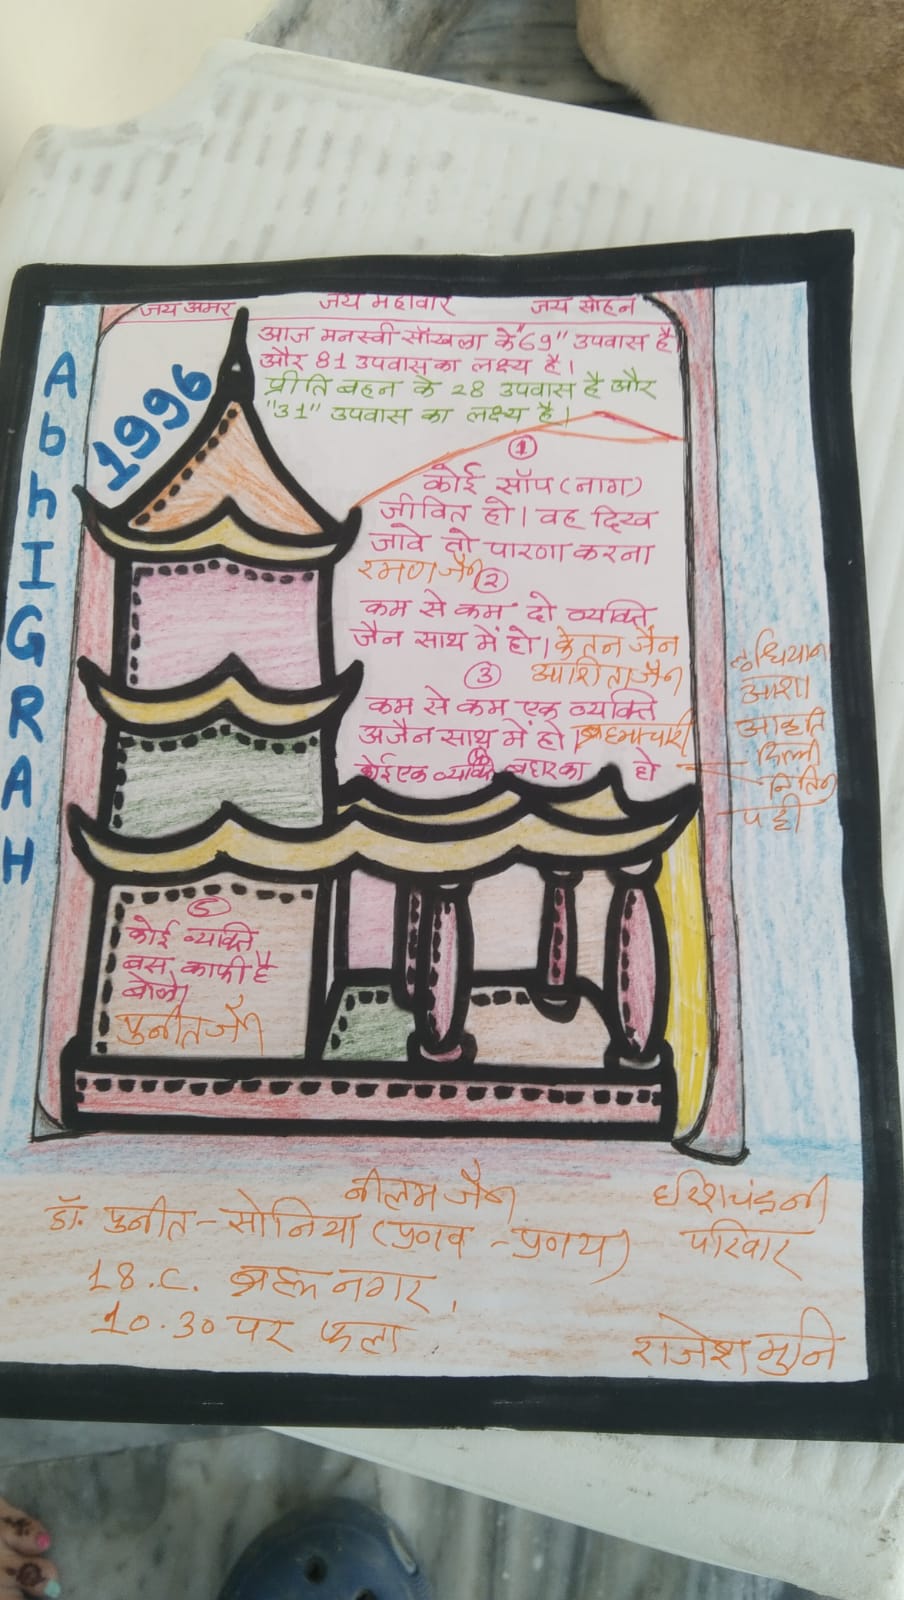 जय अमर जय महावीर जय सोहन
आज मनस्वी सॉखला के "69" उपवास है
और 81 उपवास का लक्ष्य है।
प्रीति बहन के 28 उपवास है और
"31" उपवास का लक्ष्य है।
1996
AbhIGRAH
①
कोई सॉप (नाग)
जीवित हो। वह दिख
जावे तो पारणा करना
रमण जैन
②
कम से कम दो व्यक्ति
जैन साथ में हो। केतन जैन
आशिता जैन
③
कम से कम एक व्यक्ति
अजैन साथ में हो। ब्रह्मचारी
④
कोई एक व्यक्ति बहार का हो
लुधियाना
आशा
आकृति
दिल्ली
नितिन
⑤
कोई व्यक्ति
बस काफी है
बोले।
पुनीत जैन
नीलम जैन
डॉ. पुनीत - सोनिया (प्रणव - प्रणय) परिवार
18.C. नगर,
10.30 पर फला
राजेश मुनि